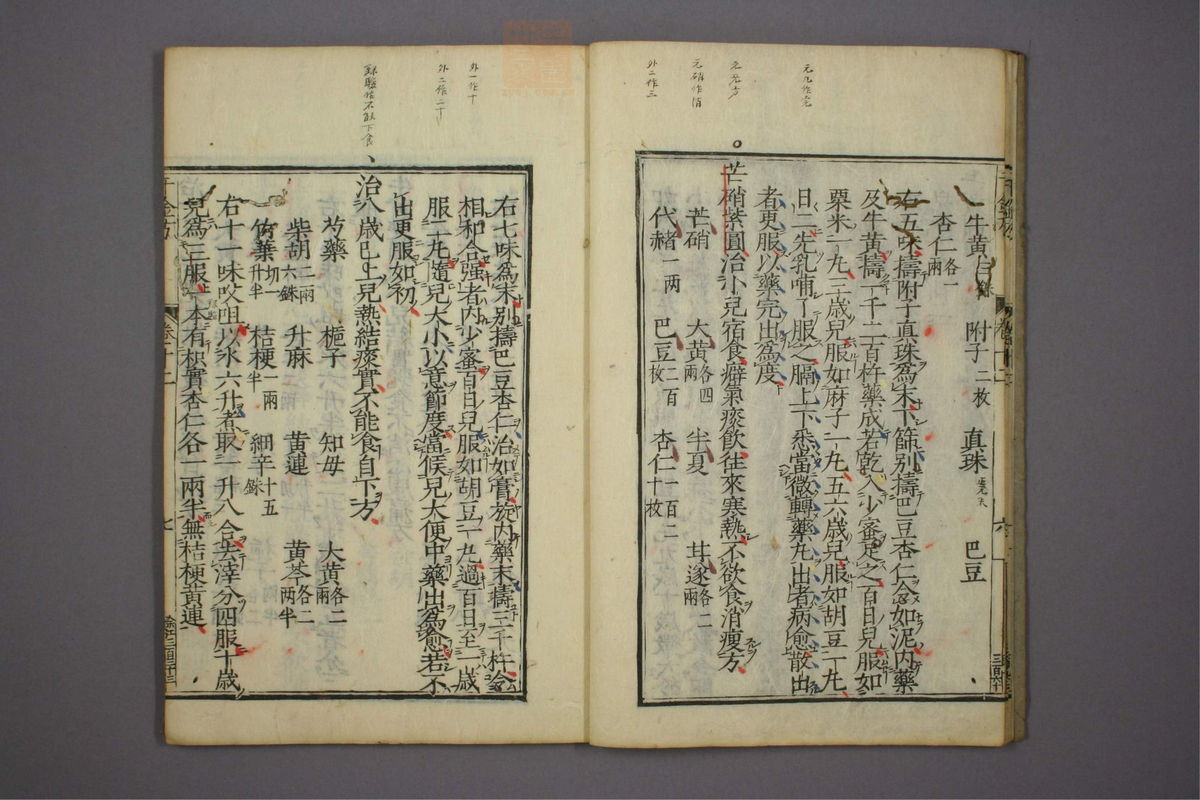 元九作丸
元無方
元硝作消
外二作三
牛黄 附子二枚 真珠 巴豆
杏仁各一兩
右五味擣附子真珠爲末下篩別擣巴豆杏仁令如泥内藥
及牛黄擣一千二百杵藥成若乾入少蜜足之百日兒服如
粟米一丸三歳兒服如麻子一丸五六歳兒服如胡豆一丸
日二先乳哺了服之膈上下悉當微轉藥丸出者病愈散出
者更服以藥完出爲度
芒硝紫圓治小兒宿食癖氣痰飲往來寒熱不欲食消瘦方
芒硝 大黄各四兩 半夏 甘遂各二兩
代赭一两 巴豆二百枚 杏仁一百二十枚
千金方 卷十二 六
外一作十
外二作二十
右七味爲末別擣巴豆杏仁治如膏旋内藥末擣三千杵令
相和合強者内少蜜百日兒服如胡豆一丸過百日至一歳
服二丸隨兒大小以意節度當候兒大便中藥出爲愈若不
出更服如初
治八歳已上兒熱結痰實不能食自下方
芍藥 梔子 知母 大黄各二兩
柴胡二兩六銖 升麻 黄連 黄芩各二两半
竹葉切一升半 桔梗一兩半 細辛十五銖
右十一味㕮咀以水六升煮取一升八合去滓分四服十歳
兒爲三服本有枳實杏仁各一兩半無桔梗黄連
千金方 卷十二 七